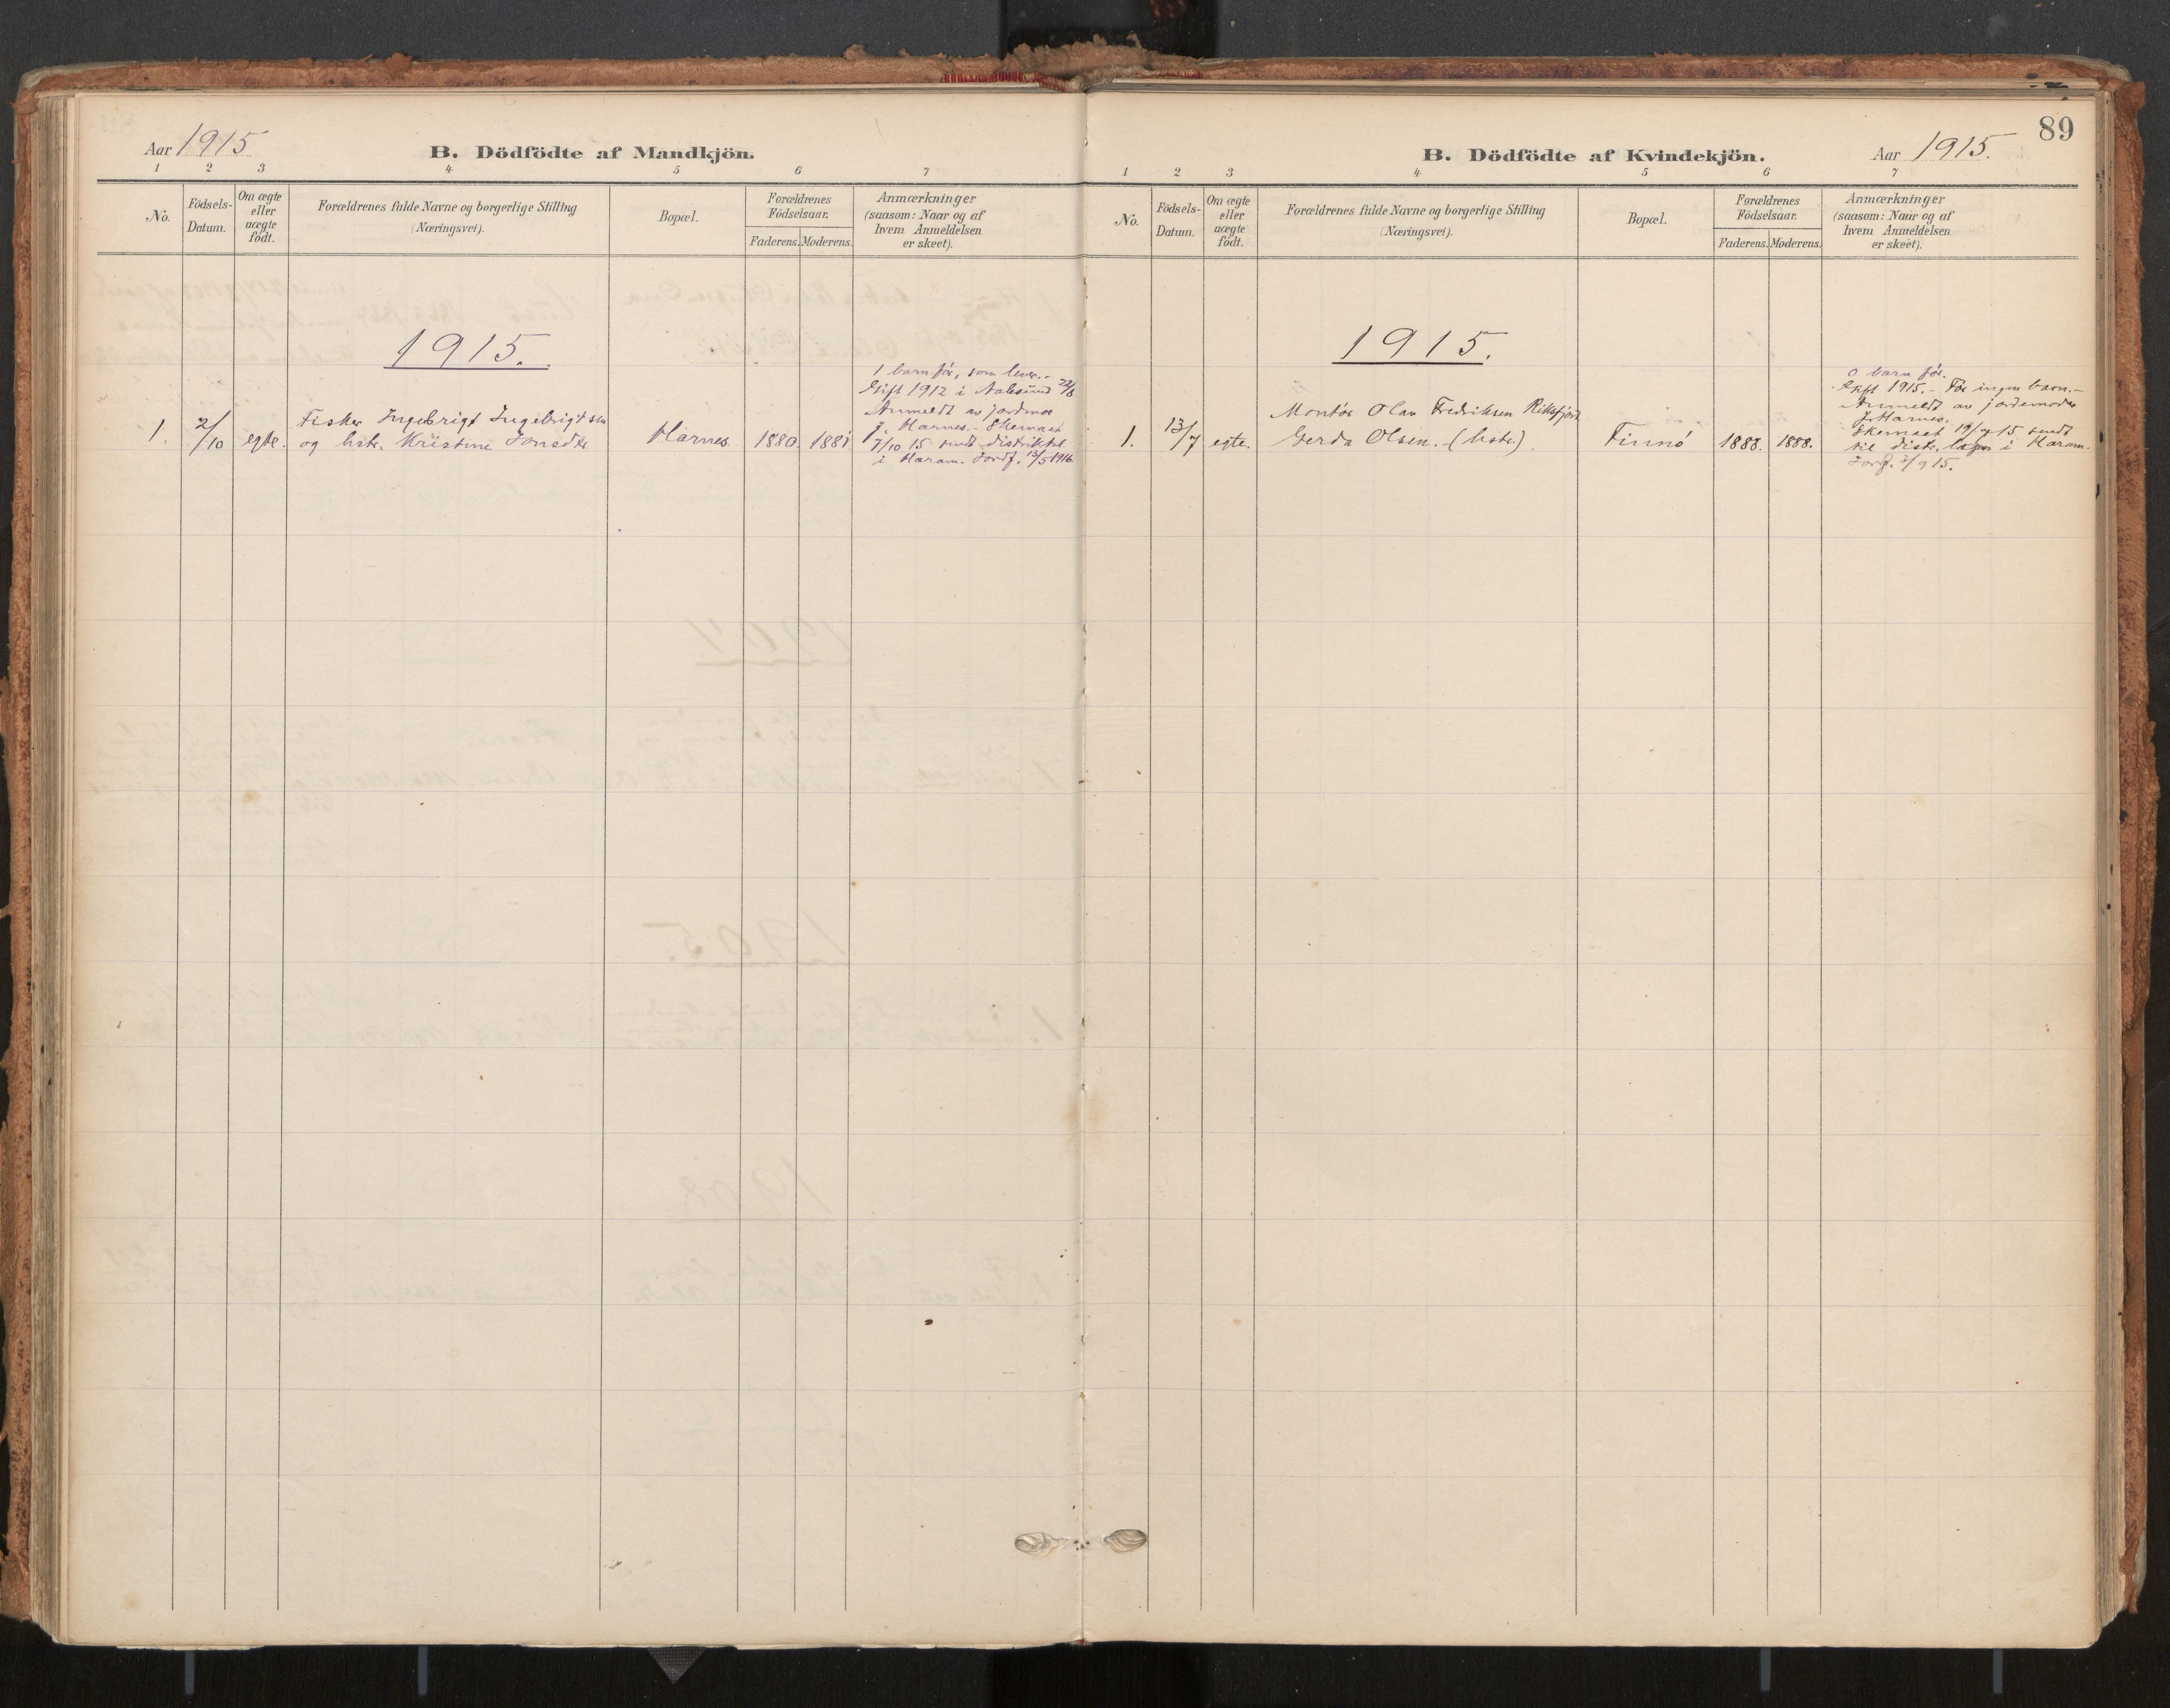 Aar 1915
B. Dödfödte af Mandkjön.
1 2 3 4 5 6 7
No.
Födsels-
Datum.
Om ægte
eller
uægte
födt.
Forældrenes fulde Navne og borgerlige Stilling
(Næringsvei).
Bopæl.
Forældrenes
Födselsaar.
Faderens. Moderens.
Anmærkninger
(saasom: Naar og af
hvem Anmeldelsen
er skeet).
1915.
1. 2/10 egte.
Fisker Ingebrigt Ingebrigtsen
og hstr. Kristine Jonsdtr.
Harnes. 1880. 1881.
1 barn før, som lever.
Gift 1912 i Aalesund 22/6
Anmeldt av jordmor
J. Harnes. Skemaet
7/10 15 sendt distriktsl.
i Haram. Jordf. 13/5 1916.
89
B. Dödfödte af Kvindekjön.
Aar 1915.
1 2 3 4 5 6 7
No.
Födsels-
Datum.
Om ægte
eller
uægte
födt.
Forældrenes fulde Navne og borgerlige Stilling
(Næringsvei).
Bopæl.
Forældrenes
Födselsaar.
Faderens. Moderens.
Anmærkninger
(saasom: Naar og af
hvem Anmeldelsen
er skeet).
1915.
1. 13/7 egte.
Montør Olav Fredriksen Riksfjord
Gerda Olsen. (hstr.).
Finnø 1888. 1888.
0 barn før.
Gift 1915. Før ingen barn.
Anmeldt av jordemoder
J. Harnes.
Skemaet 19/7 15 sendt
til distr. lægen i Haram.
Jordf. 2/9 15.